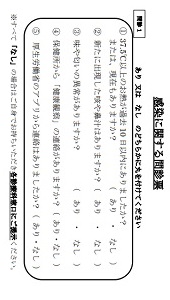 感染に関する問診票
あり 又は なし のどちらかに丸を付けてください
問診1
① 37.5℃以上のお熱が過去10日以内にありましたか?
または、現在もありますか? ( あり ・ なし )
② 新たに出現した咳や鼻汁はありますか? ( あり ・ なし )
③ 味や匂いの異常がありますか? ( あり ・ なし )
④ 保健所から「健康観察」の連絡がありますか? ( あり・なし )
⑤ 厚生労働省のアプリから連絡はありましたか? ( あり・なし )
※すべて「なし」の場合はご自身でお持ちいただき各診療科窓口にご提示ください。